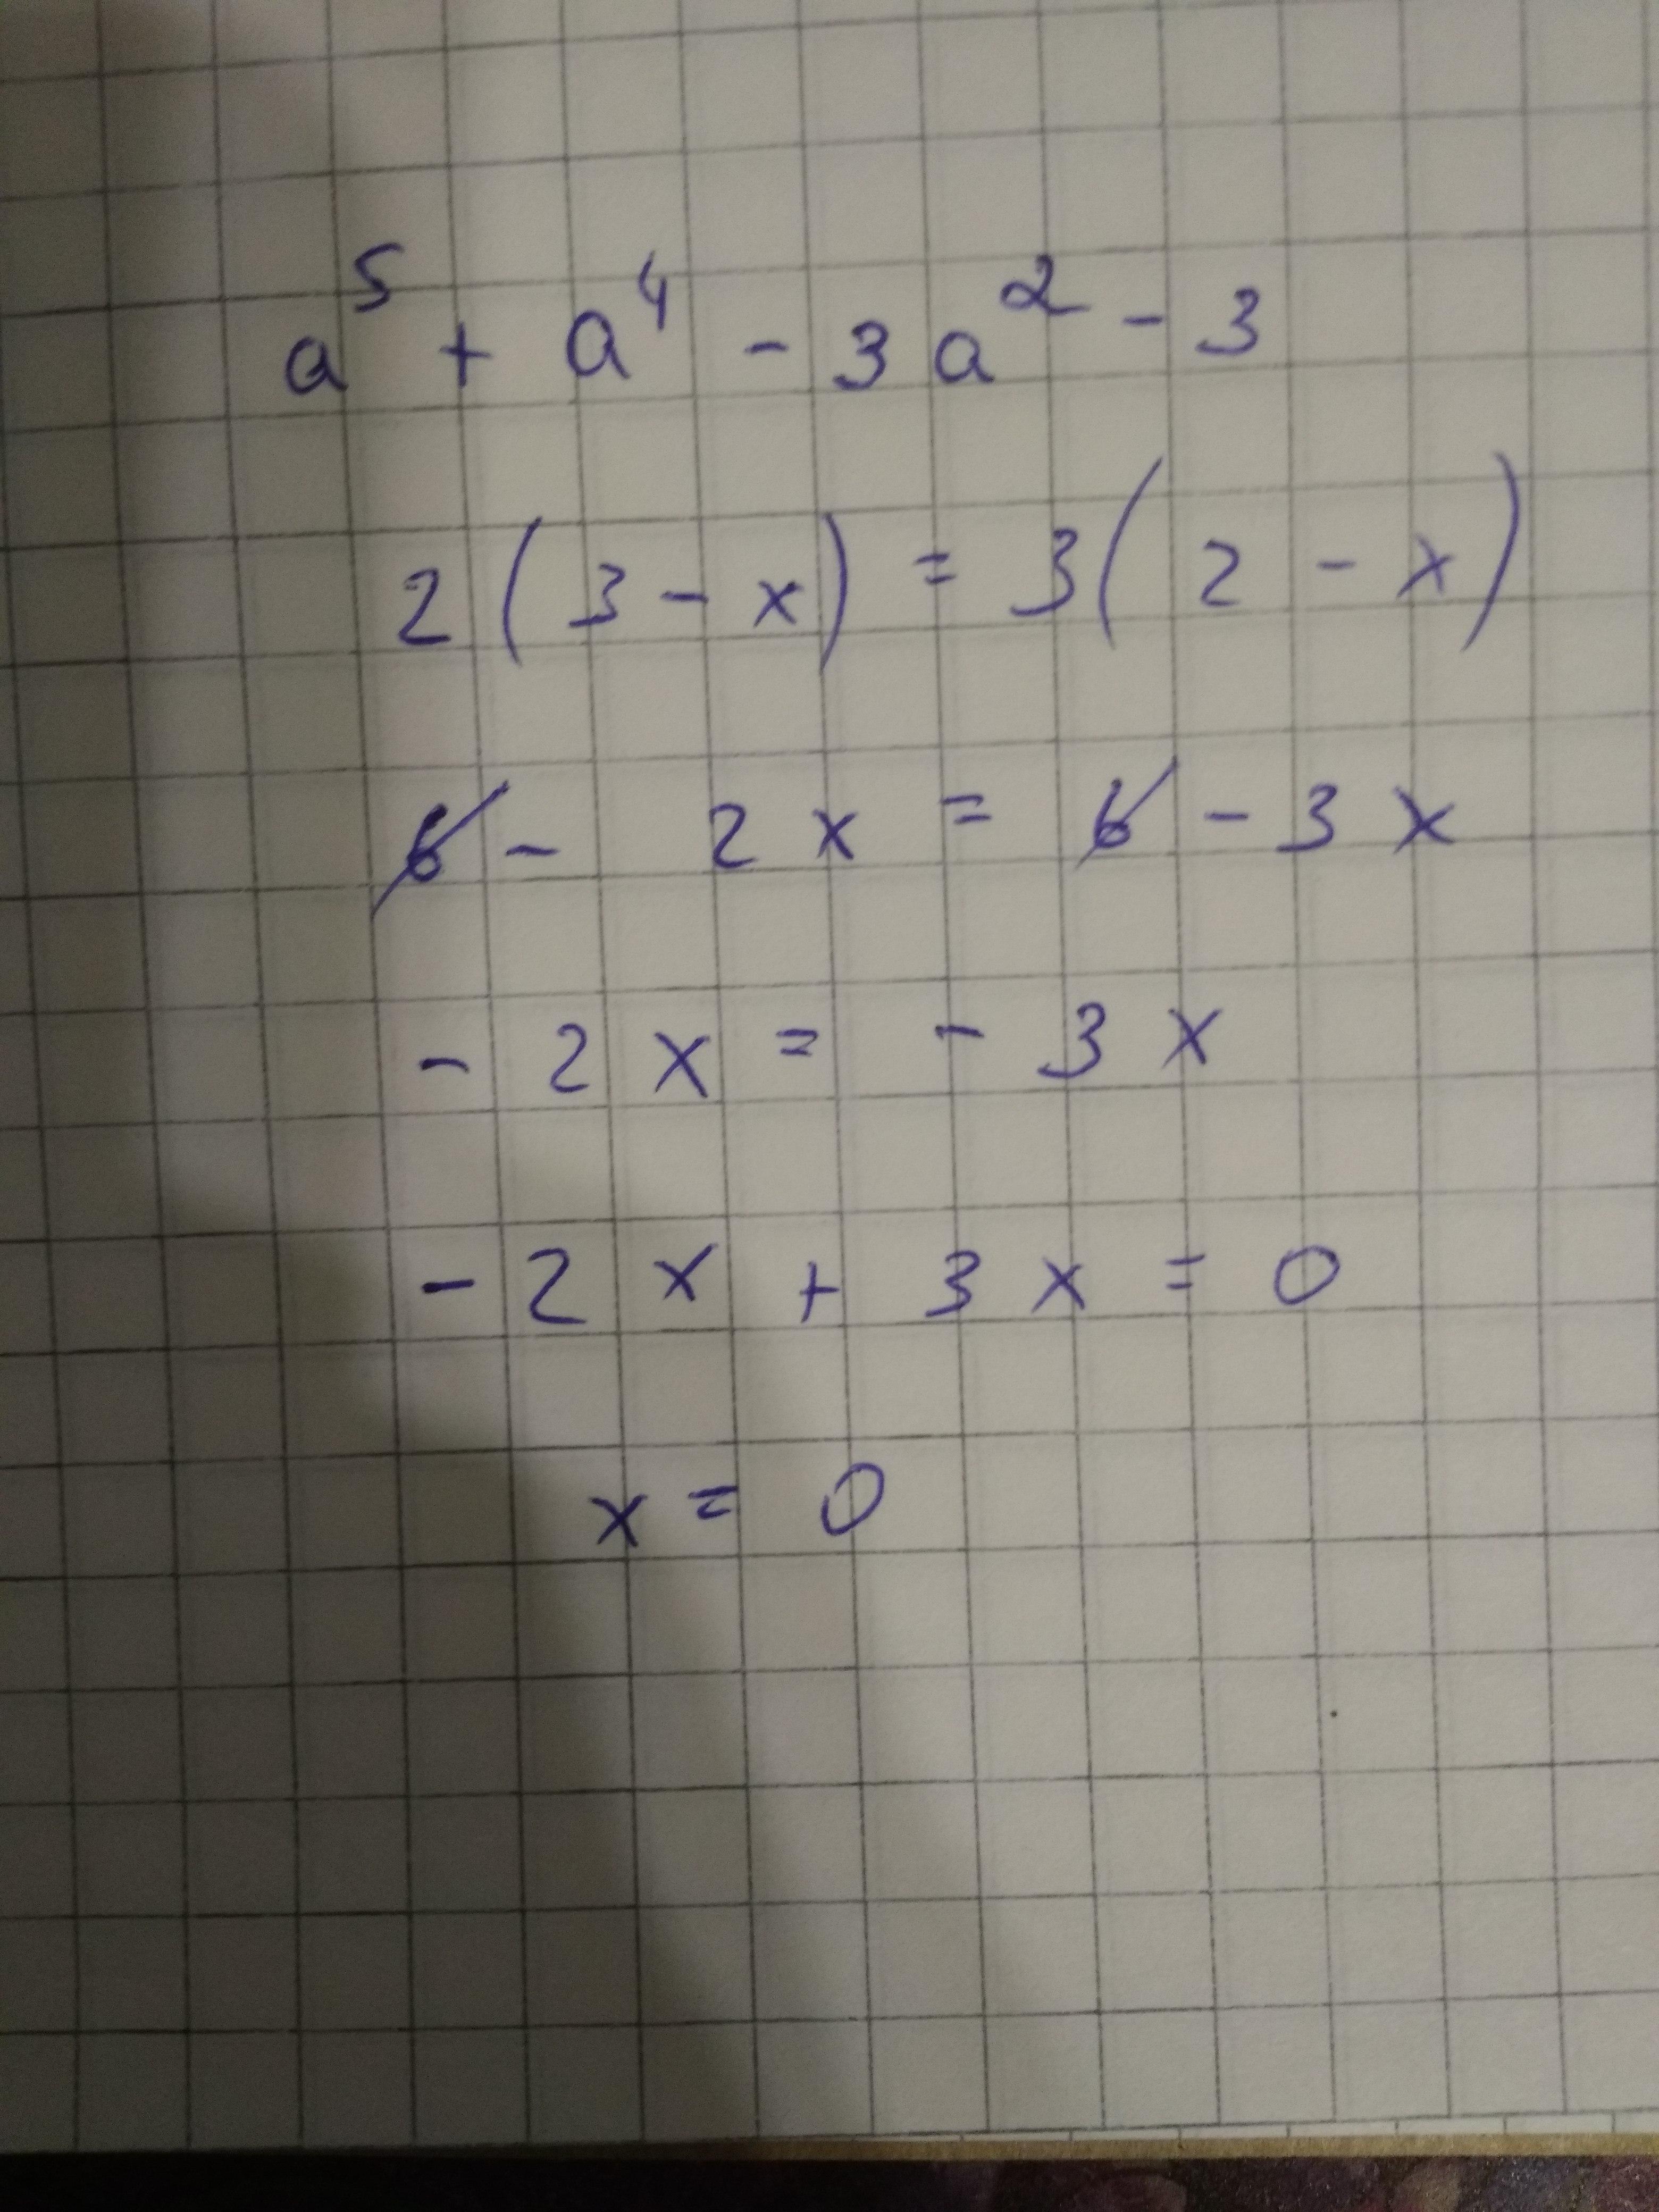 a⁵ + a⁴ - 3a² - 3
2(3 - x) = 3(2 - x)
6 - 2x = 6 - 3x
- 2x = - 3x
- 2x + 3x = 0
x = 0